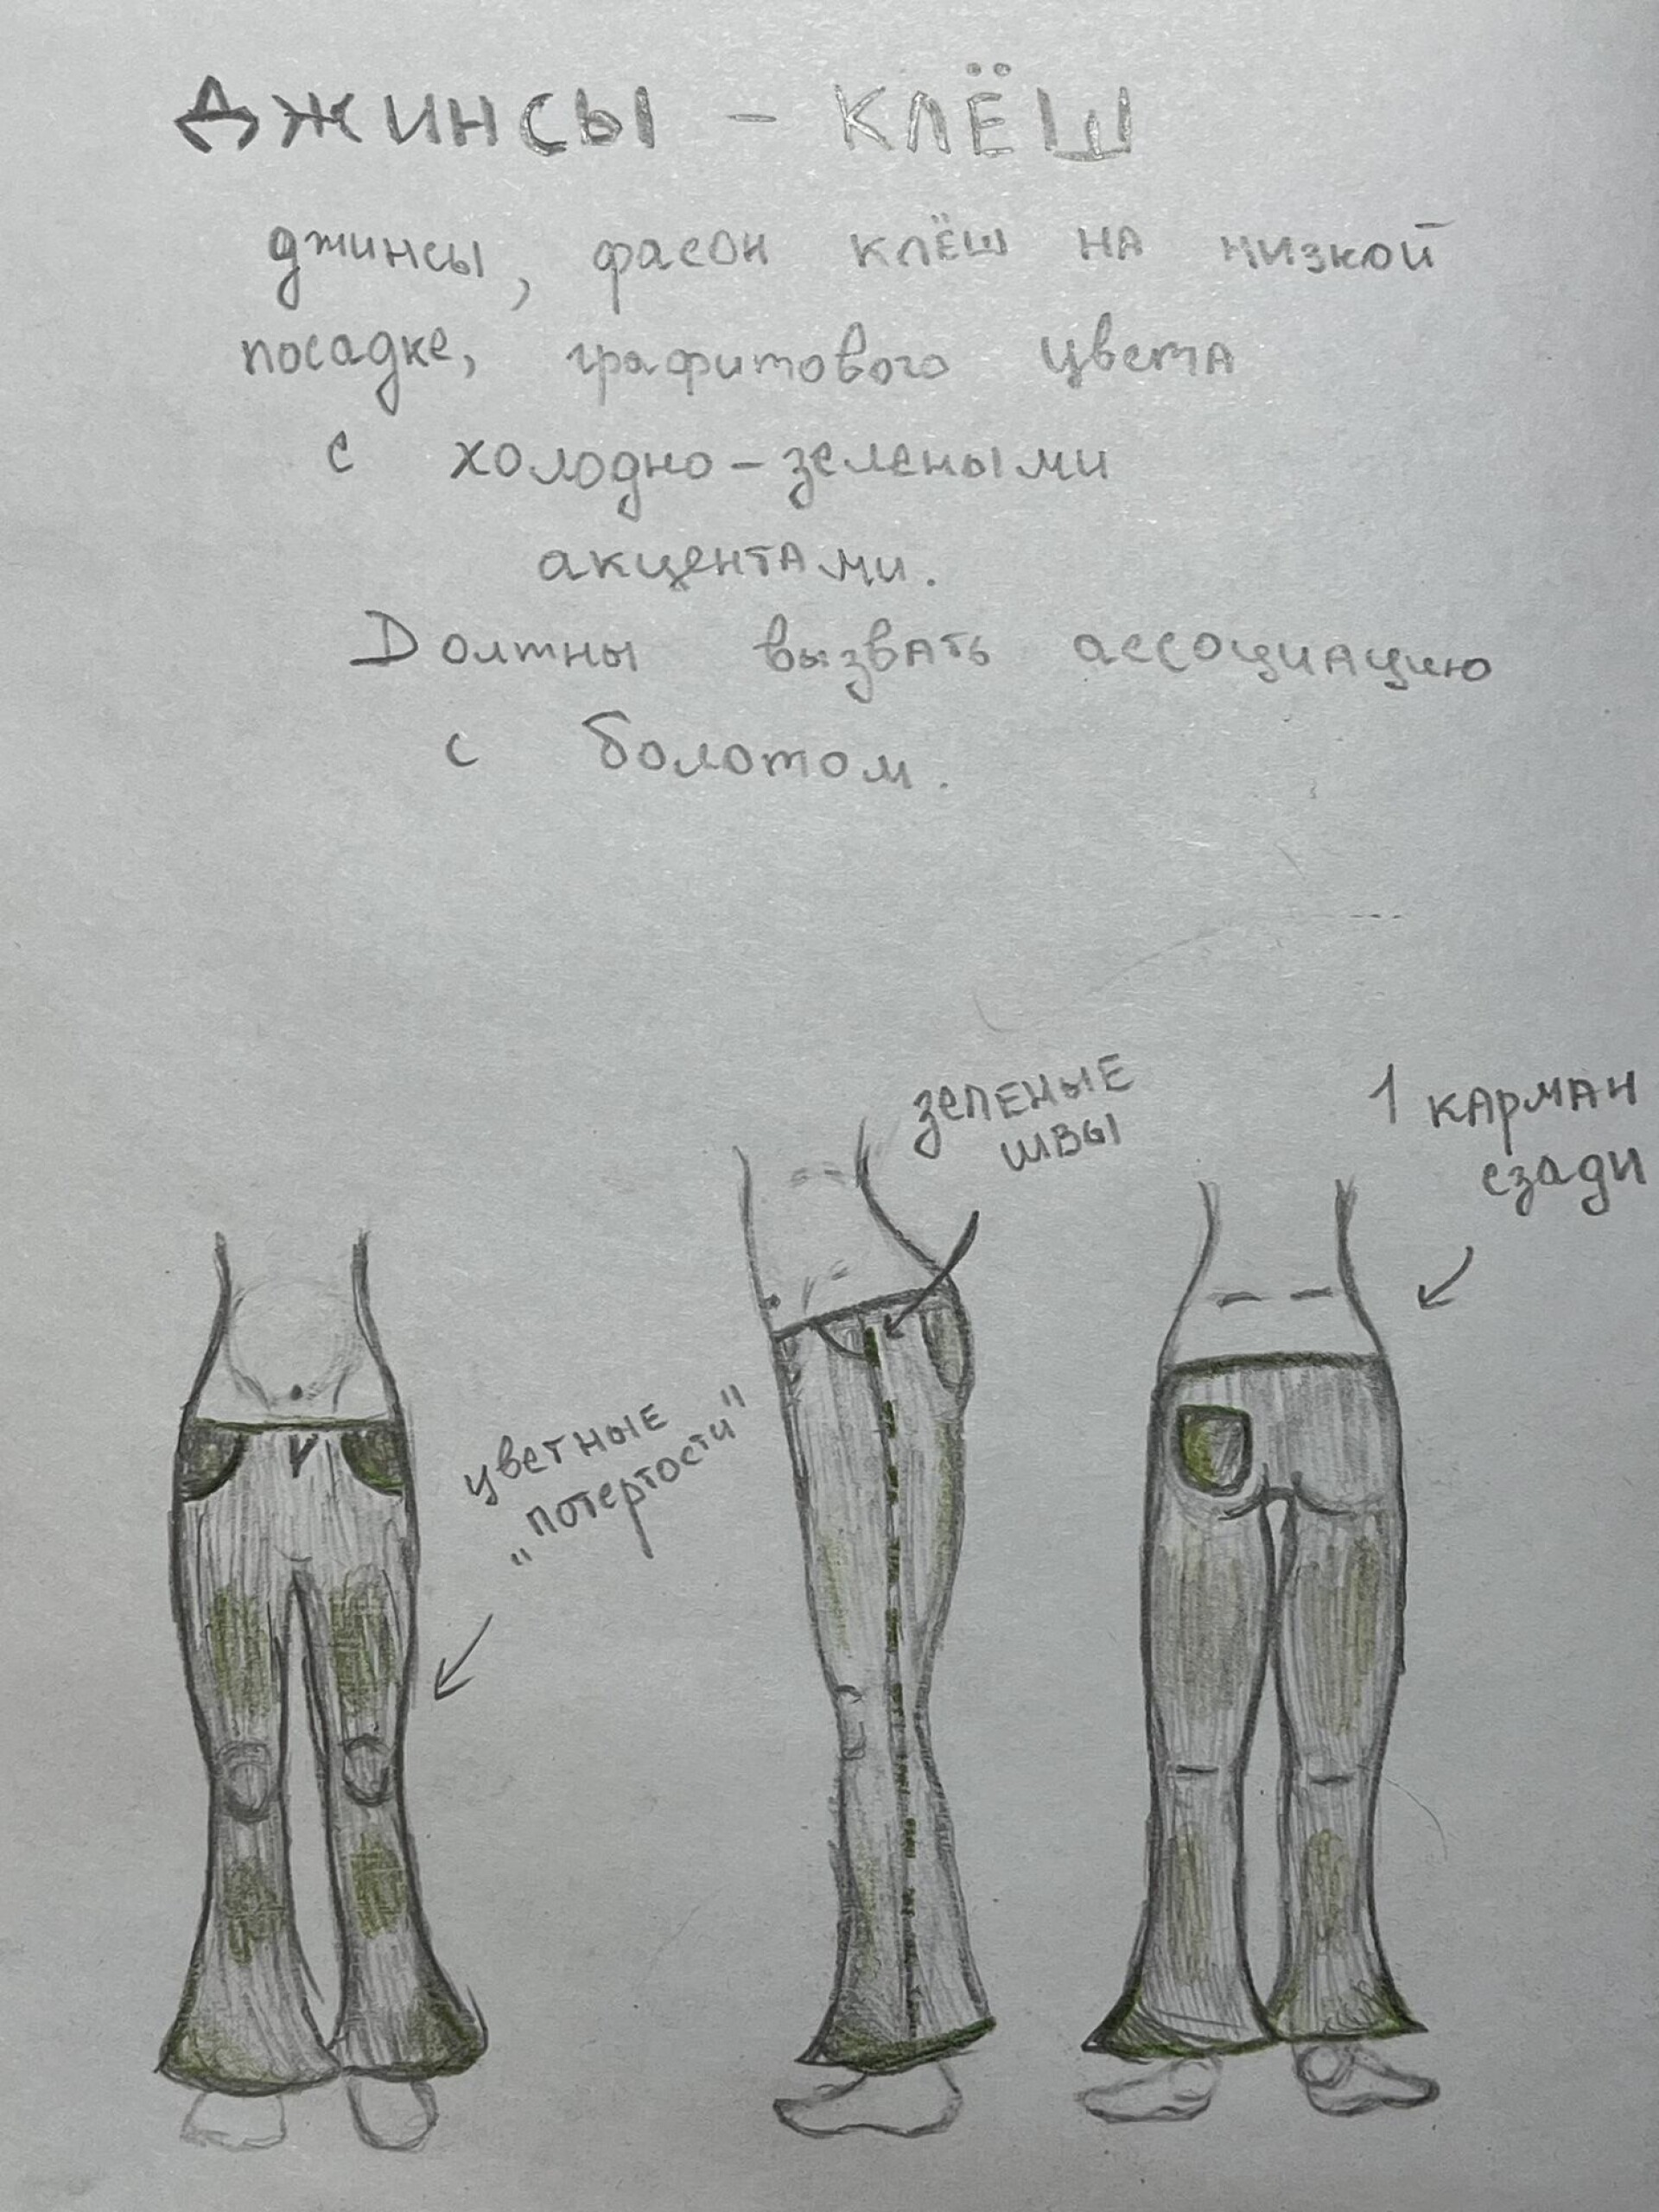 ДЖИНСЫ - КЛЁШ
джинсы, фасон клёш на низкой
посадке, графитового цвета
с холодно-зелеными
акцентами.
Должны вызвать ассоциацию
с болотом.
зеленые
швы
1 карман
сзади
цветные
"потертости"